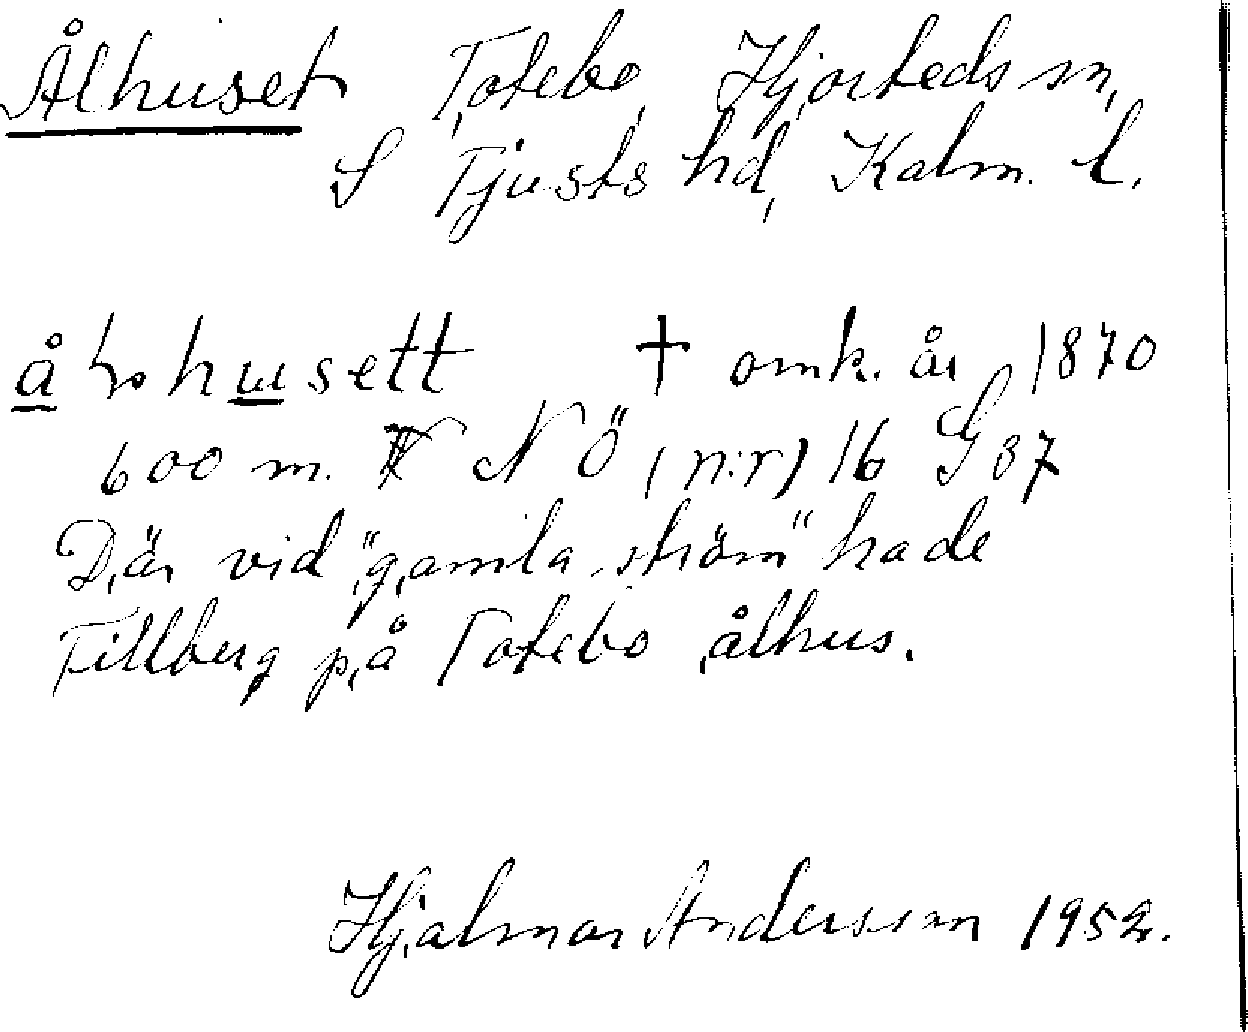 Ålhuset Totebo, Hjorteds sn,
S Tjusts hd, Kalm. l.
husett † omk. år 1870
600 m. NÖ (n:r) 16 G 37
Där vid "gamla ström" hade
Fillberg på Totebo ålhus.
Hjalmar Andersson 1952.